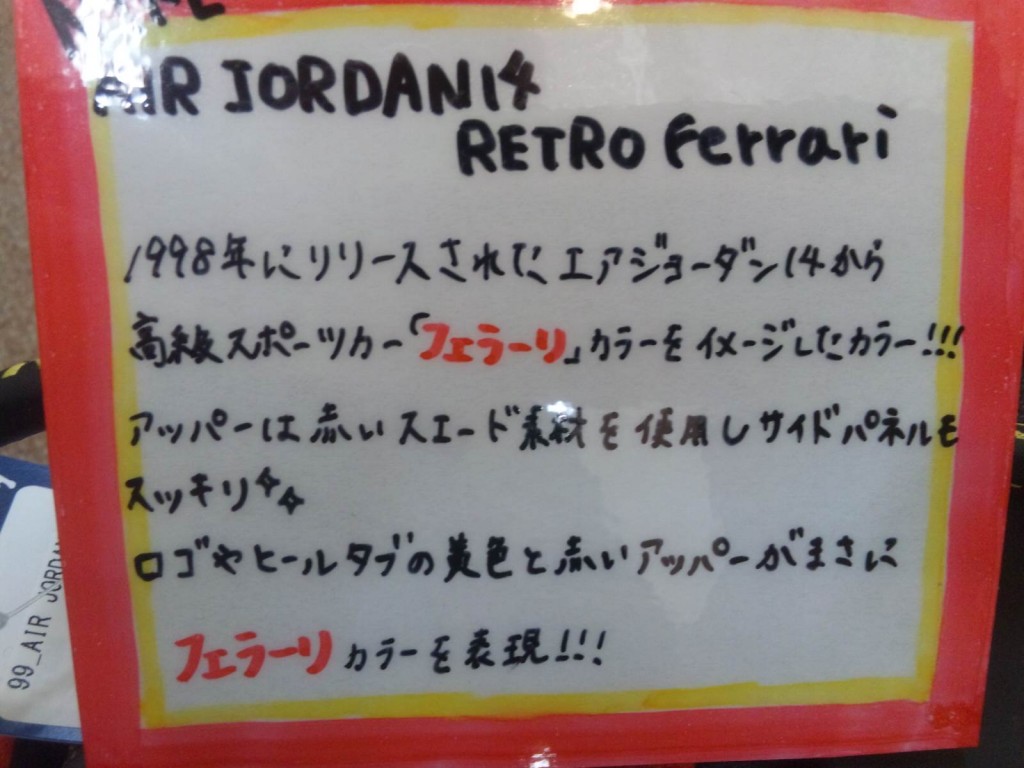 AIR JORDAN14
RETRO Ferrari
1998年にリリースされたエアジョーダン14から
高級スポーツカー「フェラーリ」カラーをイメージしたカラー!!!
アッパーは赤いスエード素材を使用しサイドパネルも
スッキリ✧✧
ロゴやヒールタブの黄色と赤いアッパーがまさに
フェラーリカラーを表現!!!
99_AIR JORDAN